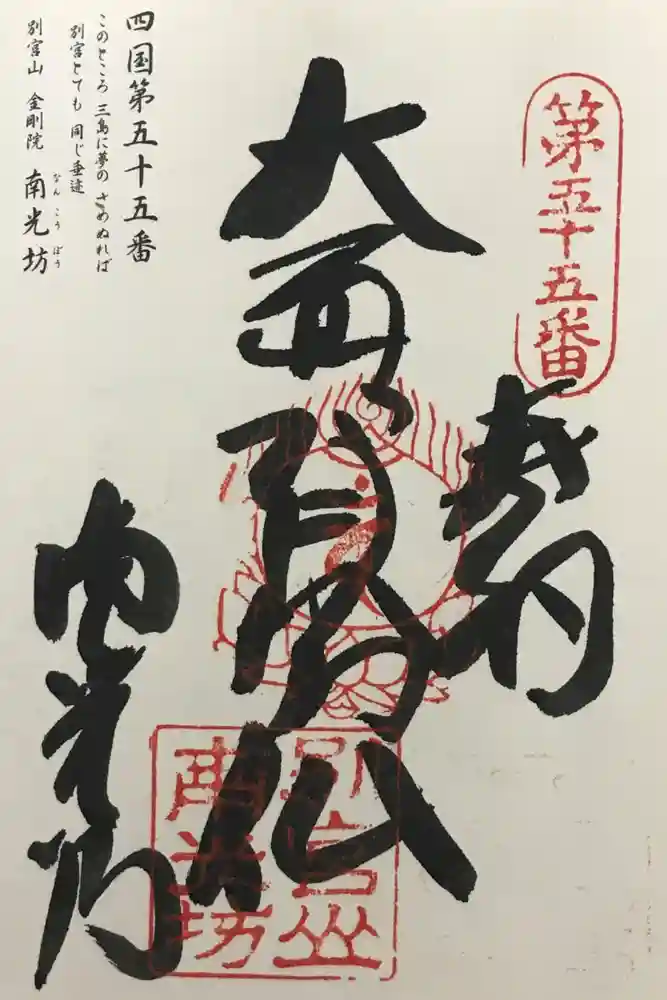 四国第五十五番
このところ 三島に夢の さめぬれば
別宮とても 同じ垂迹
別宮山 金剛院 南光坊
なんこうぼう
第五十五番
奉納
大通智勝仏
南光坊
別宮山
南光坊